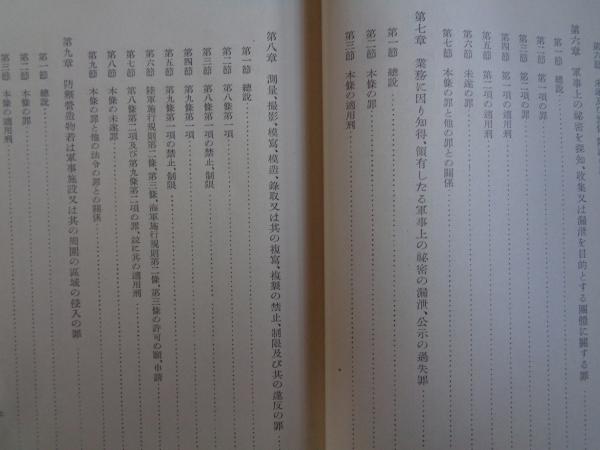 第六章 軍事上の秘密を探知、收集又は漏泄を目的とする團體に關する罪
第一節 總說
第二節 第一項の罪
第三節 第二項の罪
第四節 第一項の適用刑
第五節 第二項の適用刑
第六節 未遂の罪
第七節 本條の罪と他の罪との關係
第七章 業務に因り知得、領有したる軍事上の秘密の漏泄、公示の過失罪
第一節 總說
第二節 本條の罪
第三節 本條の適用刑
第八章 測量、撮影、模寫、模造、錄取又は其の複寫、複製の禁止、制限及び其の違反の罪
第一節 總說
第二節 第八條第一項
第三節 第八條第一項の禁止、制限
第四節 第九條第一項
第五節 第九條第一項の禁止、制限
第六節 陸軍施行規則第二條、第三條、海軍施行規則第二條、第三條の許可の願、申請
第七節 第八條第二項及び第九條第二項の罪、竝に其の適用刑
第八節 本條の未遂罪
第九節 本條の罪と他の法令の罪との關係
第九章 防禦營造物若は軍事施設又は其の周圍の區域の侵入の罪
第一節 總說
第二節 本條の罪
第三節 本條の適用刑